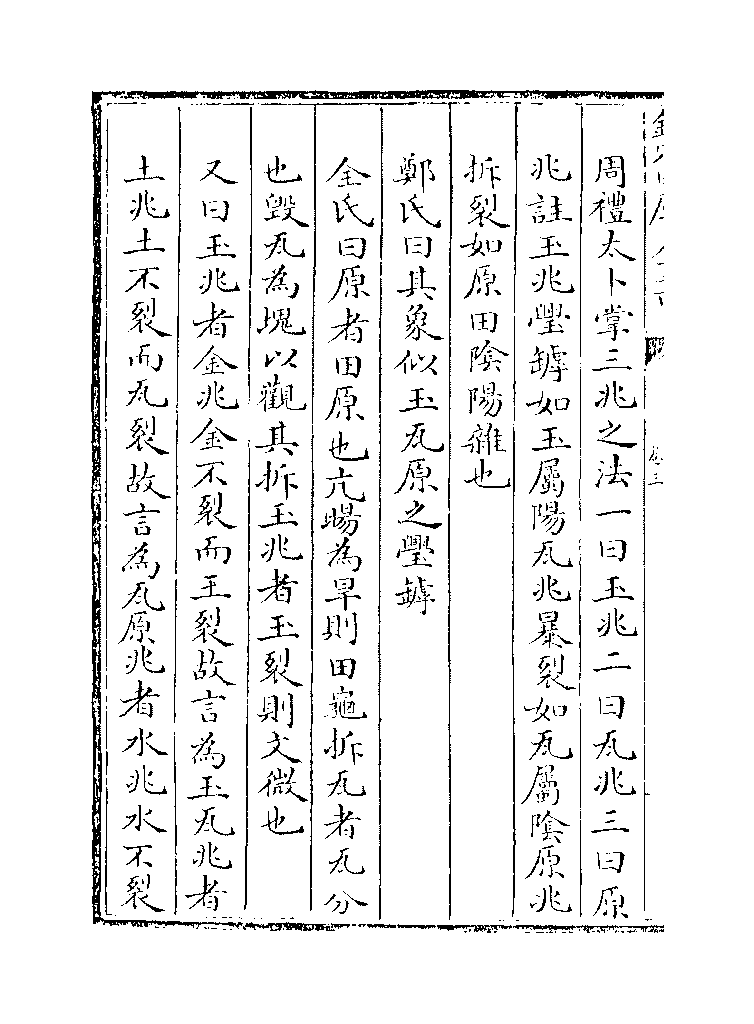 周禮太卜掌三兆之法一曰玉兆二曰瓦兆三曰原
兆註玉兆璺罅如玉屬陽瓦兆暴裂如瓦屬陰原兆
拆裂如原田陰陽雜也
鄭氏曰其象似玉瓦原之璺罅
全氏曰原者田原也亢暘為旱則田龜拆瓦者瓦分
也毀瓦為塊以觀其拆玉兆者玉裂則文微也
又曰玉兆者金兆金不裂而玉裂故言為玉瓦兆者
土兆土不裂而瓦裂故言為瓦原兆者水兆水不裂